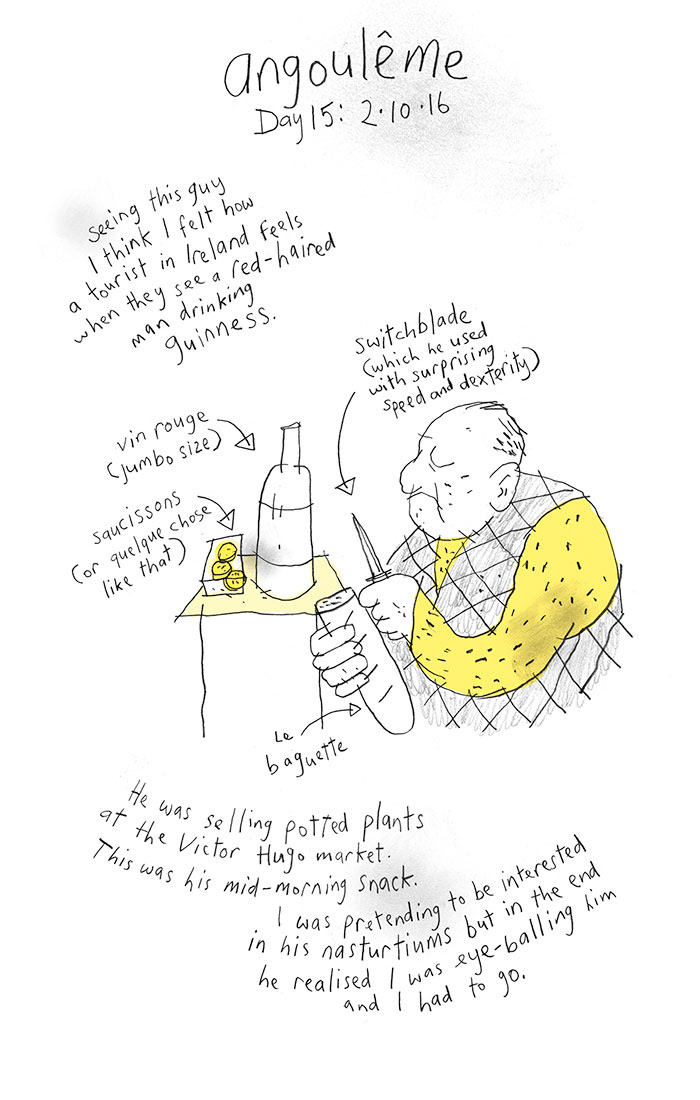 angoulême
Day 15: 2·10·16
seeing this guy
I think I felt how
a tourist in Ireland feels
when they see a red-haired
man drinking
guinness.
switchblade
(which he used
with surprising
speed and dexterity)
vin rouge
(jumbo size)
saucissons
(or quelque chose
like that)
Le
baguette
He was selling potted plants
at the Victor Hugo market.
This was his mid-morning snack.
I was pretending to be interested
in his nasturtiums but in the end
he realised I was eye-balling him
and I had to go.